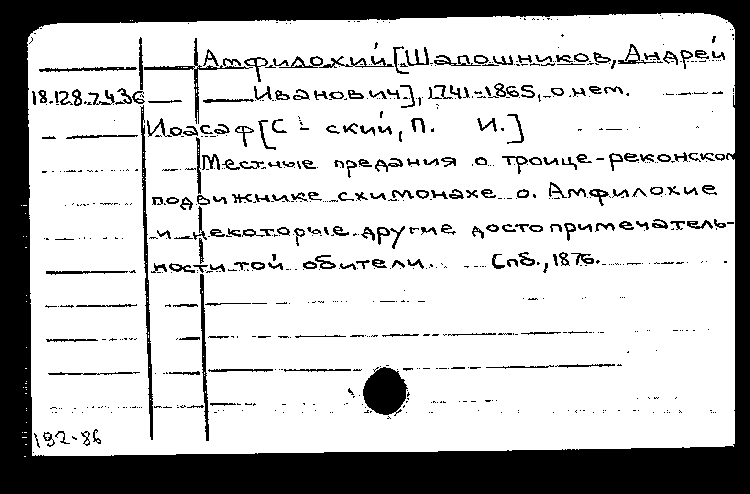 Амфилохий [Шапошников, Андрей
18.128.7.436 Иванович], 1741-1865, о нем.
Иоасаф [С - ский, П. И.]
Местные предания о троице-реконском
подвижнике схимонахе о. Амфилохие
и некоторые другие достопримечатель-
ности той обители. Спб., 1876.
192-86